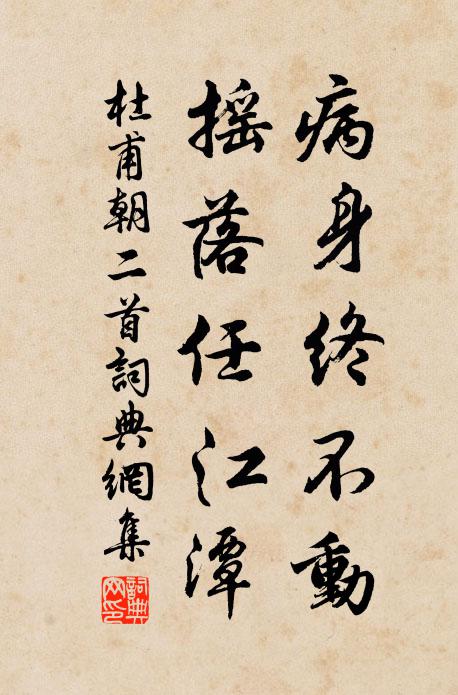 病身終不動
搖落任江潭
杜甫朝二首詞典網集
詞典網印